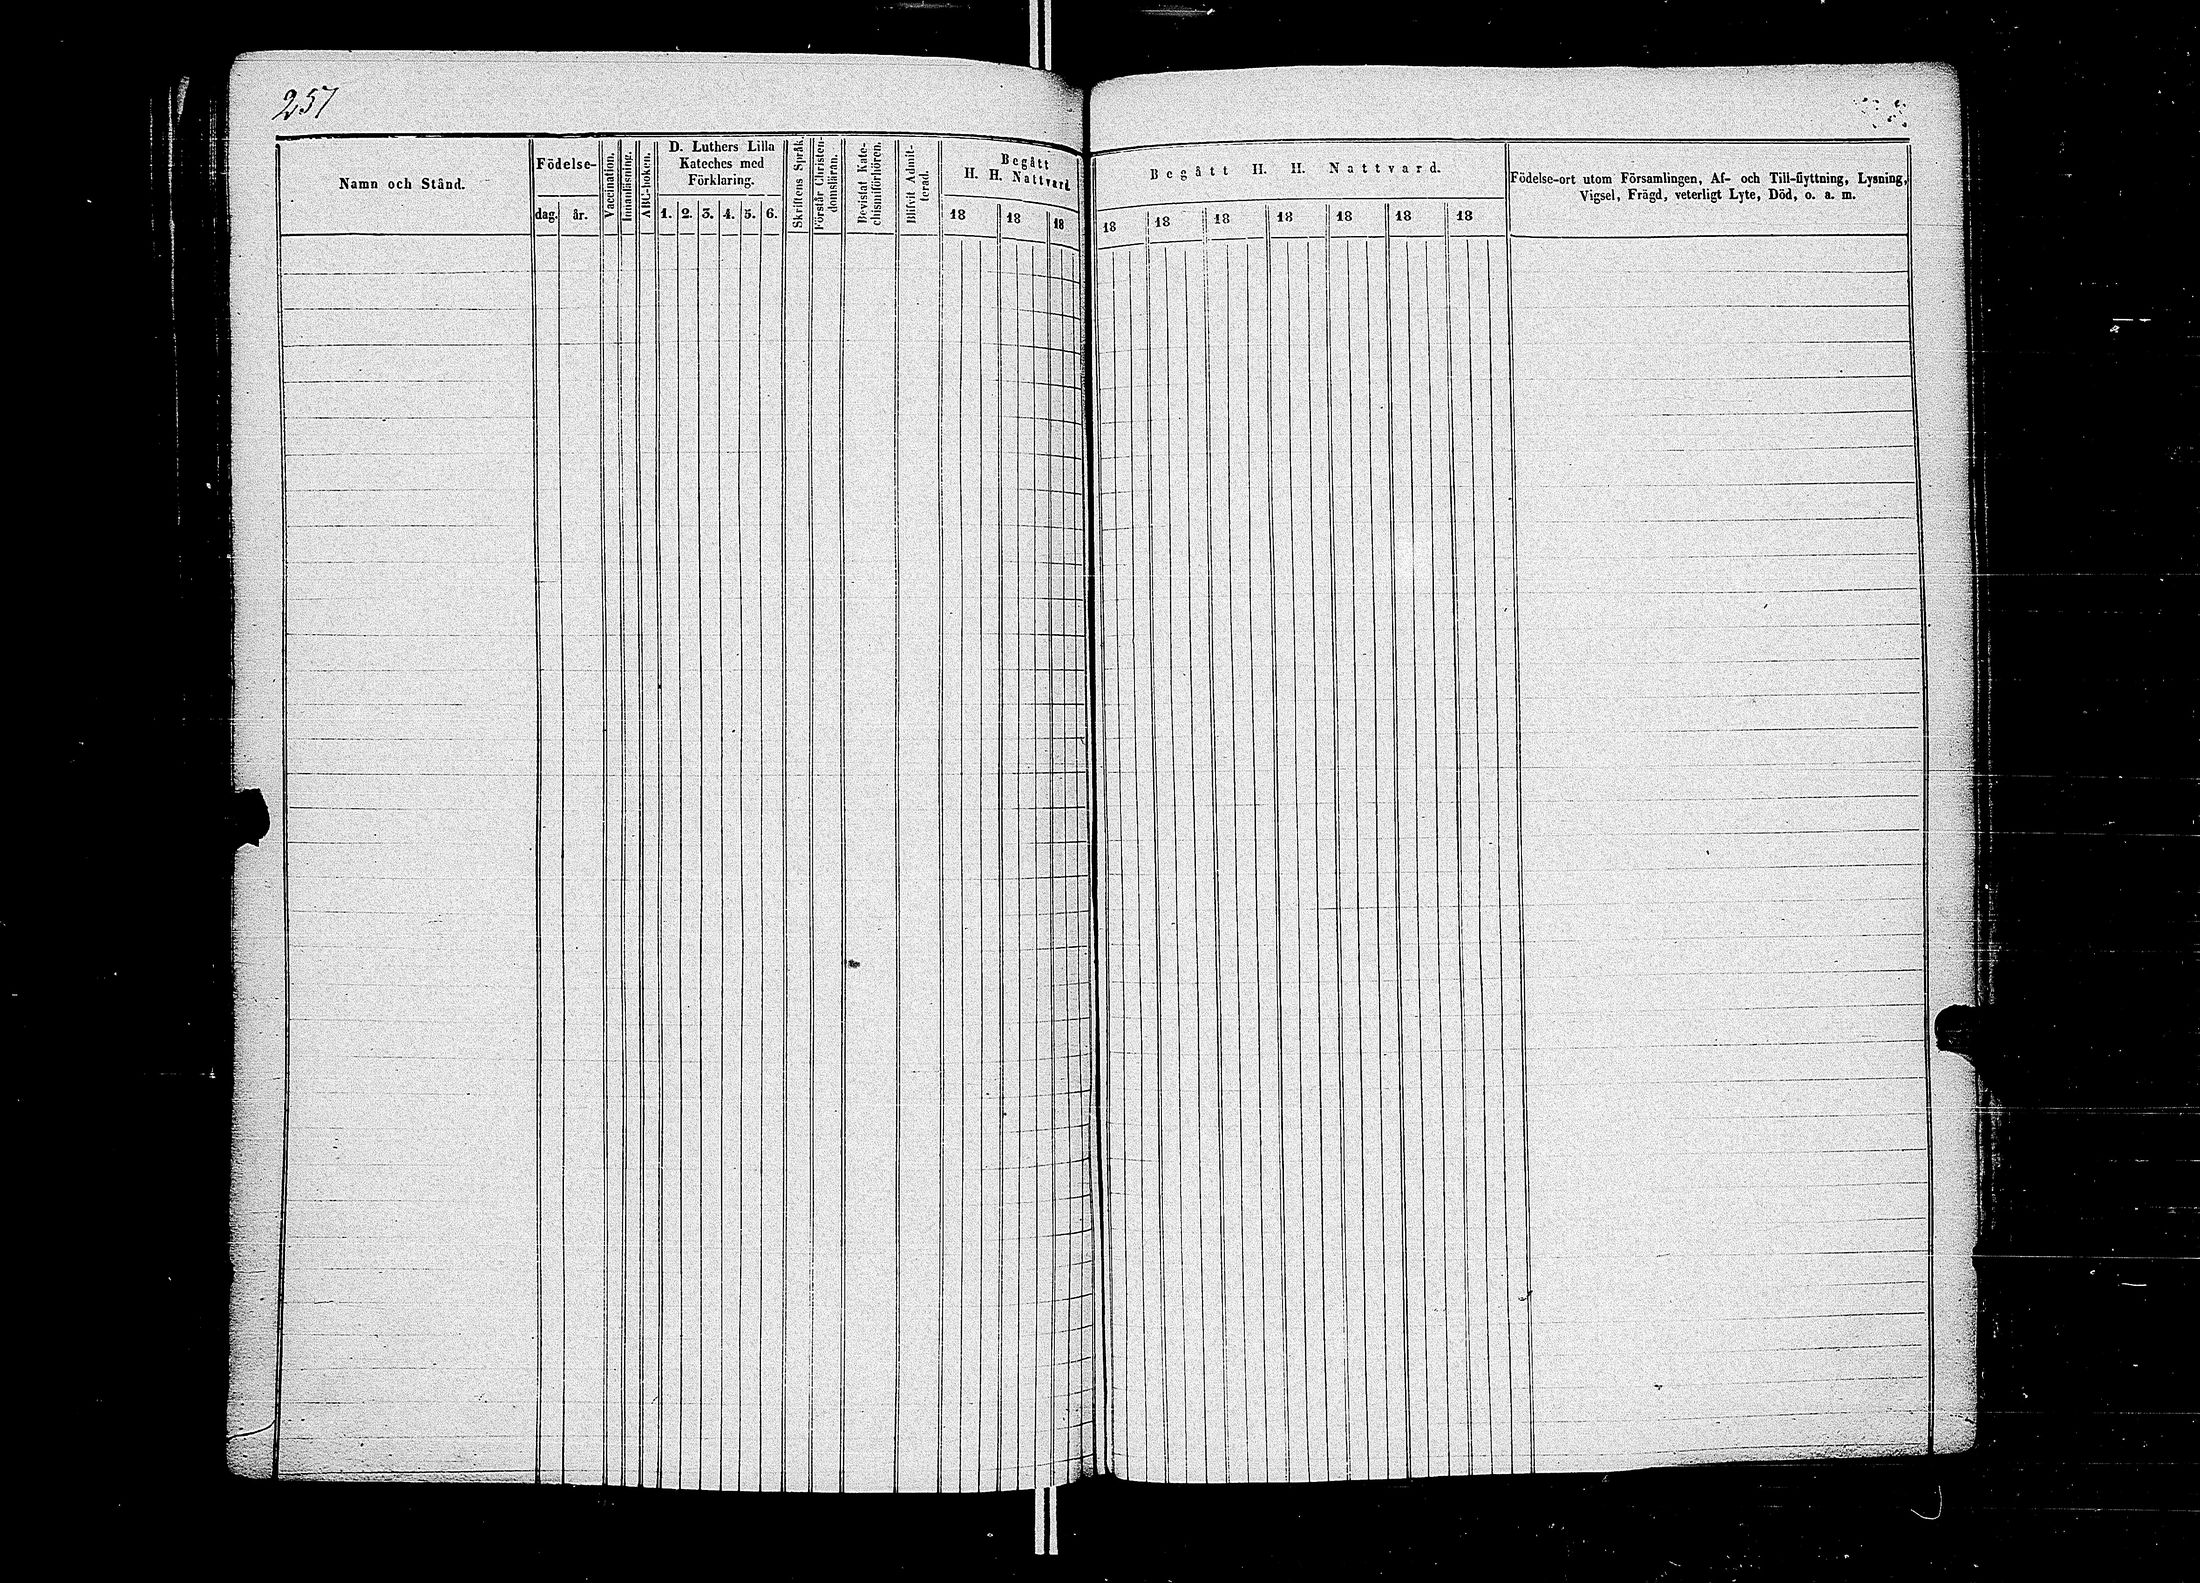 257
Namn och Stånd.
Födelse-
dag. år.
Vaccination.
Innanläsning.
ABC-boken.
D. Luthers Lilla
Kateches med
Förklaring.
1. 2. 3. 4. 5. 6.
Skriftens Språk.
Förstår Christen-
domsläran.
Bevistat Kate-
chismiförhören.
Blifvit Admit-
terad.
Begått
H. H. Nattvard.
18 18 18
Begått H. H. Nattvard.
18 18 18 18 18 18 18
Födelse-ort utom Församlingen, Af- och Till-flyttning, Lysning,
Vigsel, Frägd, veterligt Lyte, Död, o. a. m.